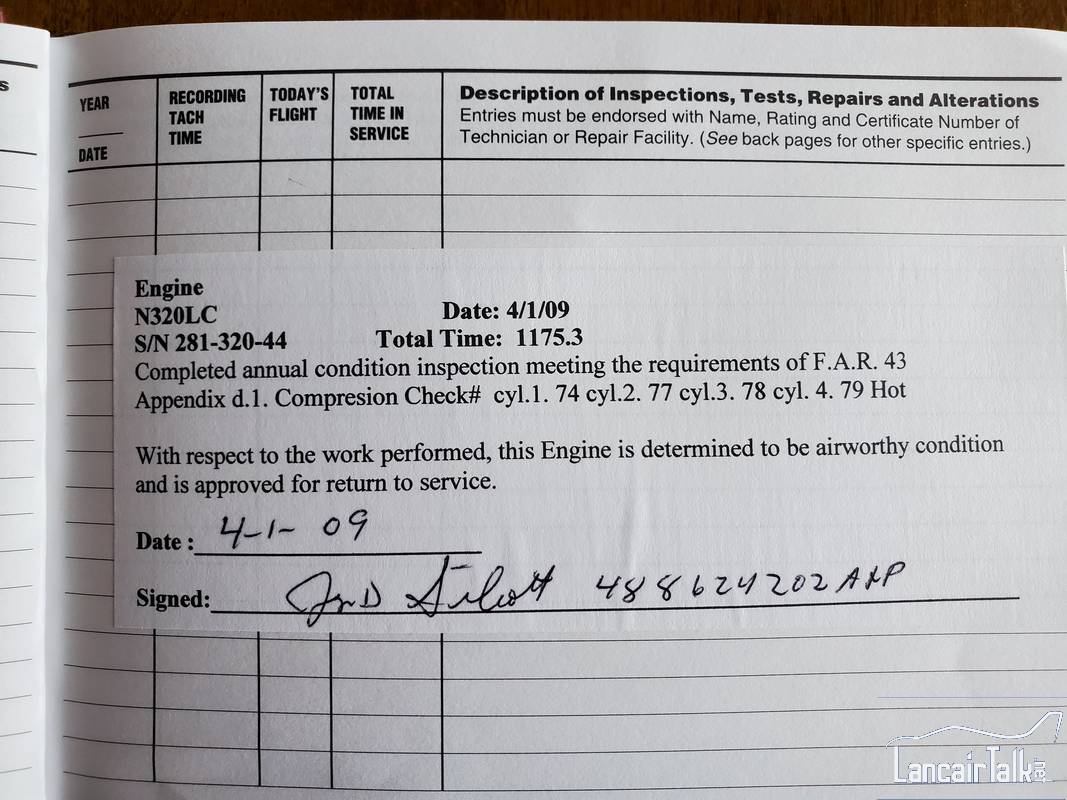 s
YEAR
DATE
RECORDING
TACH
TIME
TODAY'S
FLIGHT
TOTAL
TIME IN
SERVICE
Description of Inspections, Tests, Repairs and Alterations
Entries must be endorsed with Name, Rating and Certificate Number of
Technician or Repair Facility. (See back pages for other specific entries.)
Engine
N320LC Date: 4/1/09
S/N 281-320-44 Total Time: 1175.3
Completed annual condition inspection meeting the requirements of F.A.R. 43
Appendix d.1. Compresion Check# cyl.1. 74 cyl.2. 77 cyl.3. 78 cyl. 4. 79 Hot
With respect to the work performed, this Engine is determined to be airworthy condition
and is approved for return to service.
Date : 4-1-09
Signed: 488624202 A&P
LancairTalk.net